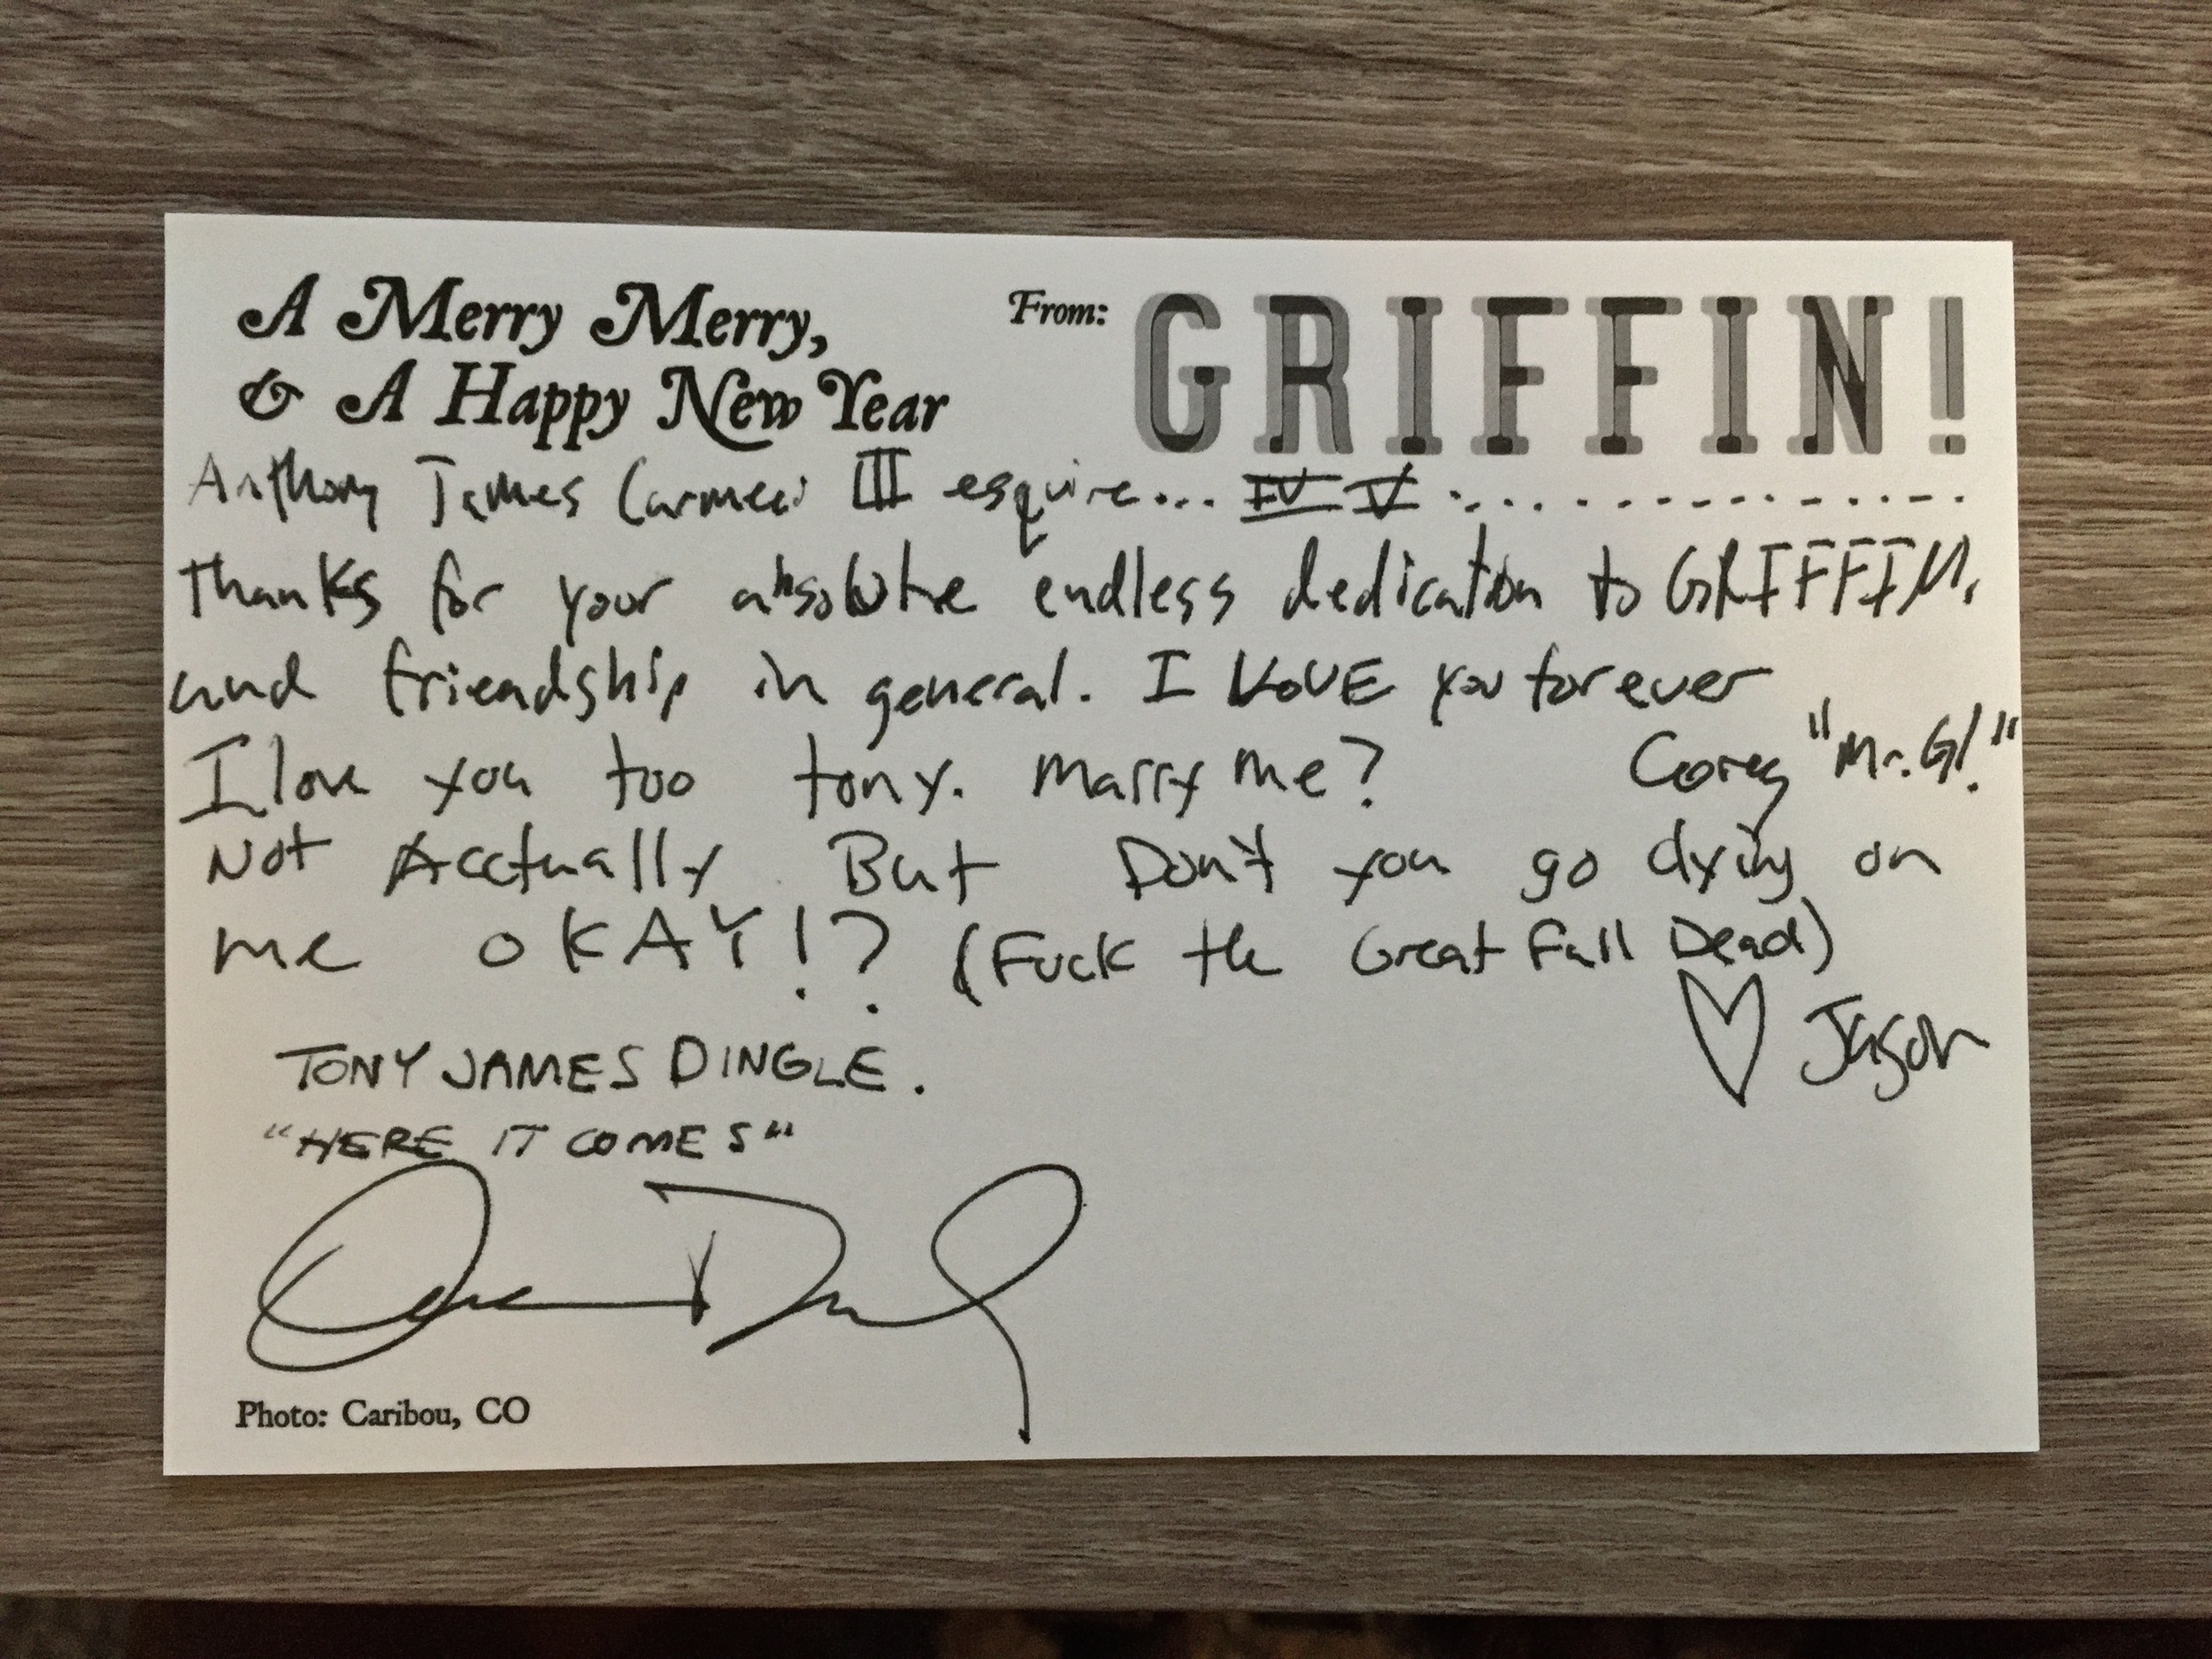 A Merry Merry,
& A Happy New Year
From: GRIFFIN!
Anthony James III esquire... IV V ................
Thanks for your absolute endless dedication to GRIFFIN,
and friendship in general. I LOVE you forever
Corey "Mr. G!"
I love you too tony. Marry me?
Not Acctually But Don't you go dying on
me OKAY!? (Fuck the Great Fall Dead)
♡ Jason
TONY JAMES DINGLE.
"HERE IT COMES"
Photo: Caribou, CO